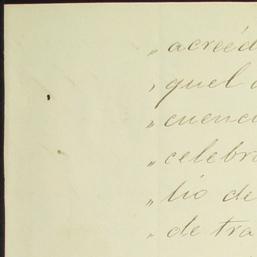 „ acreéd
„ quel
„ cuenc
„ celebr
„ lio de
„ de tra